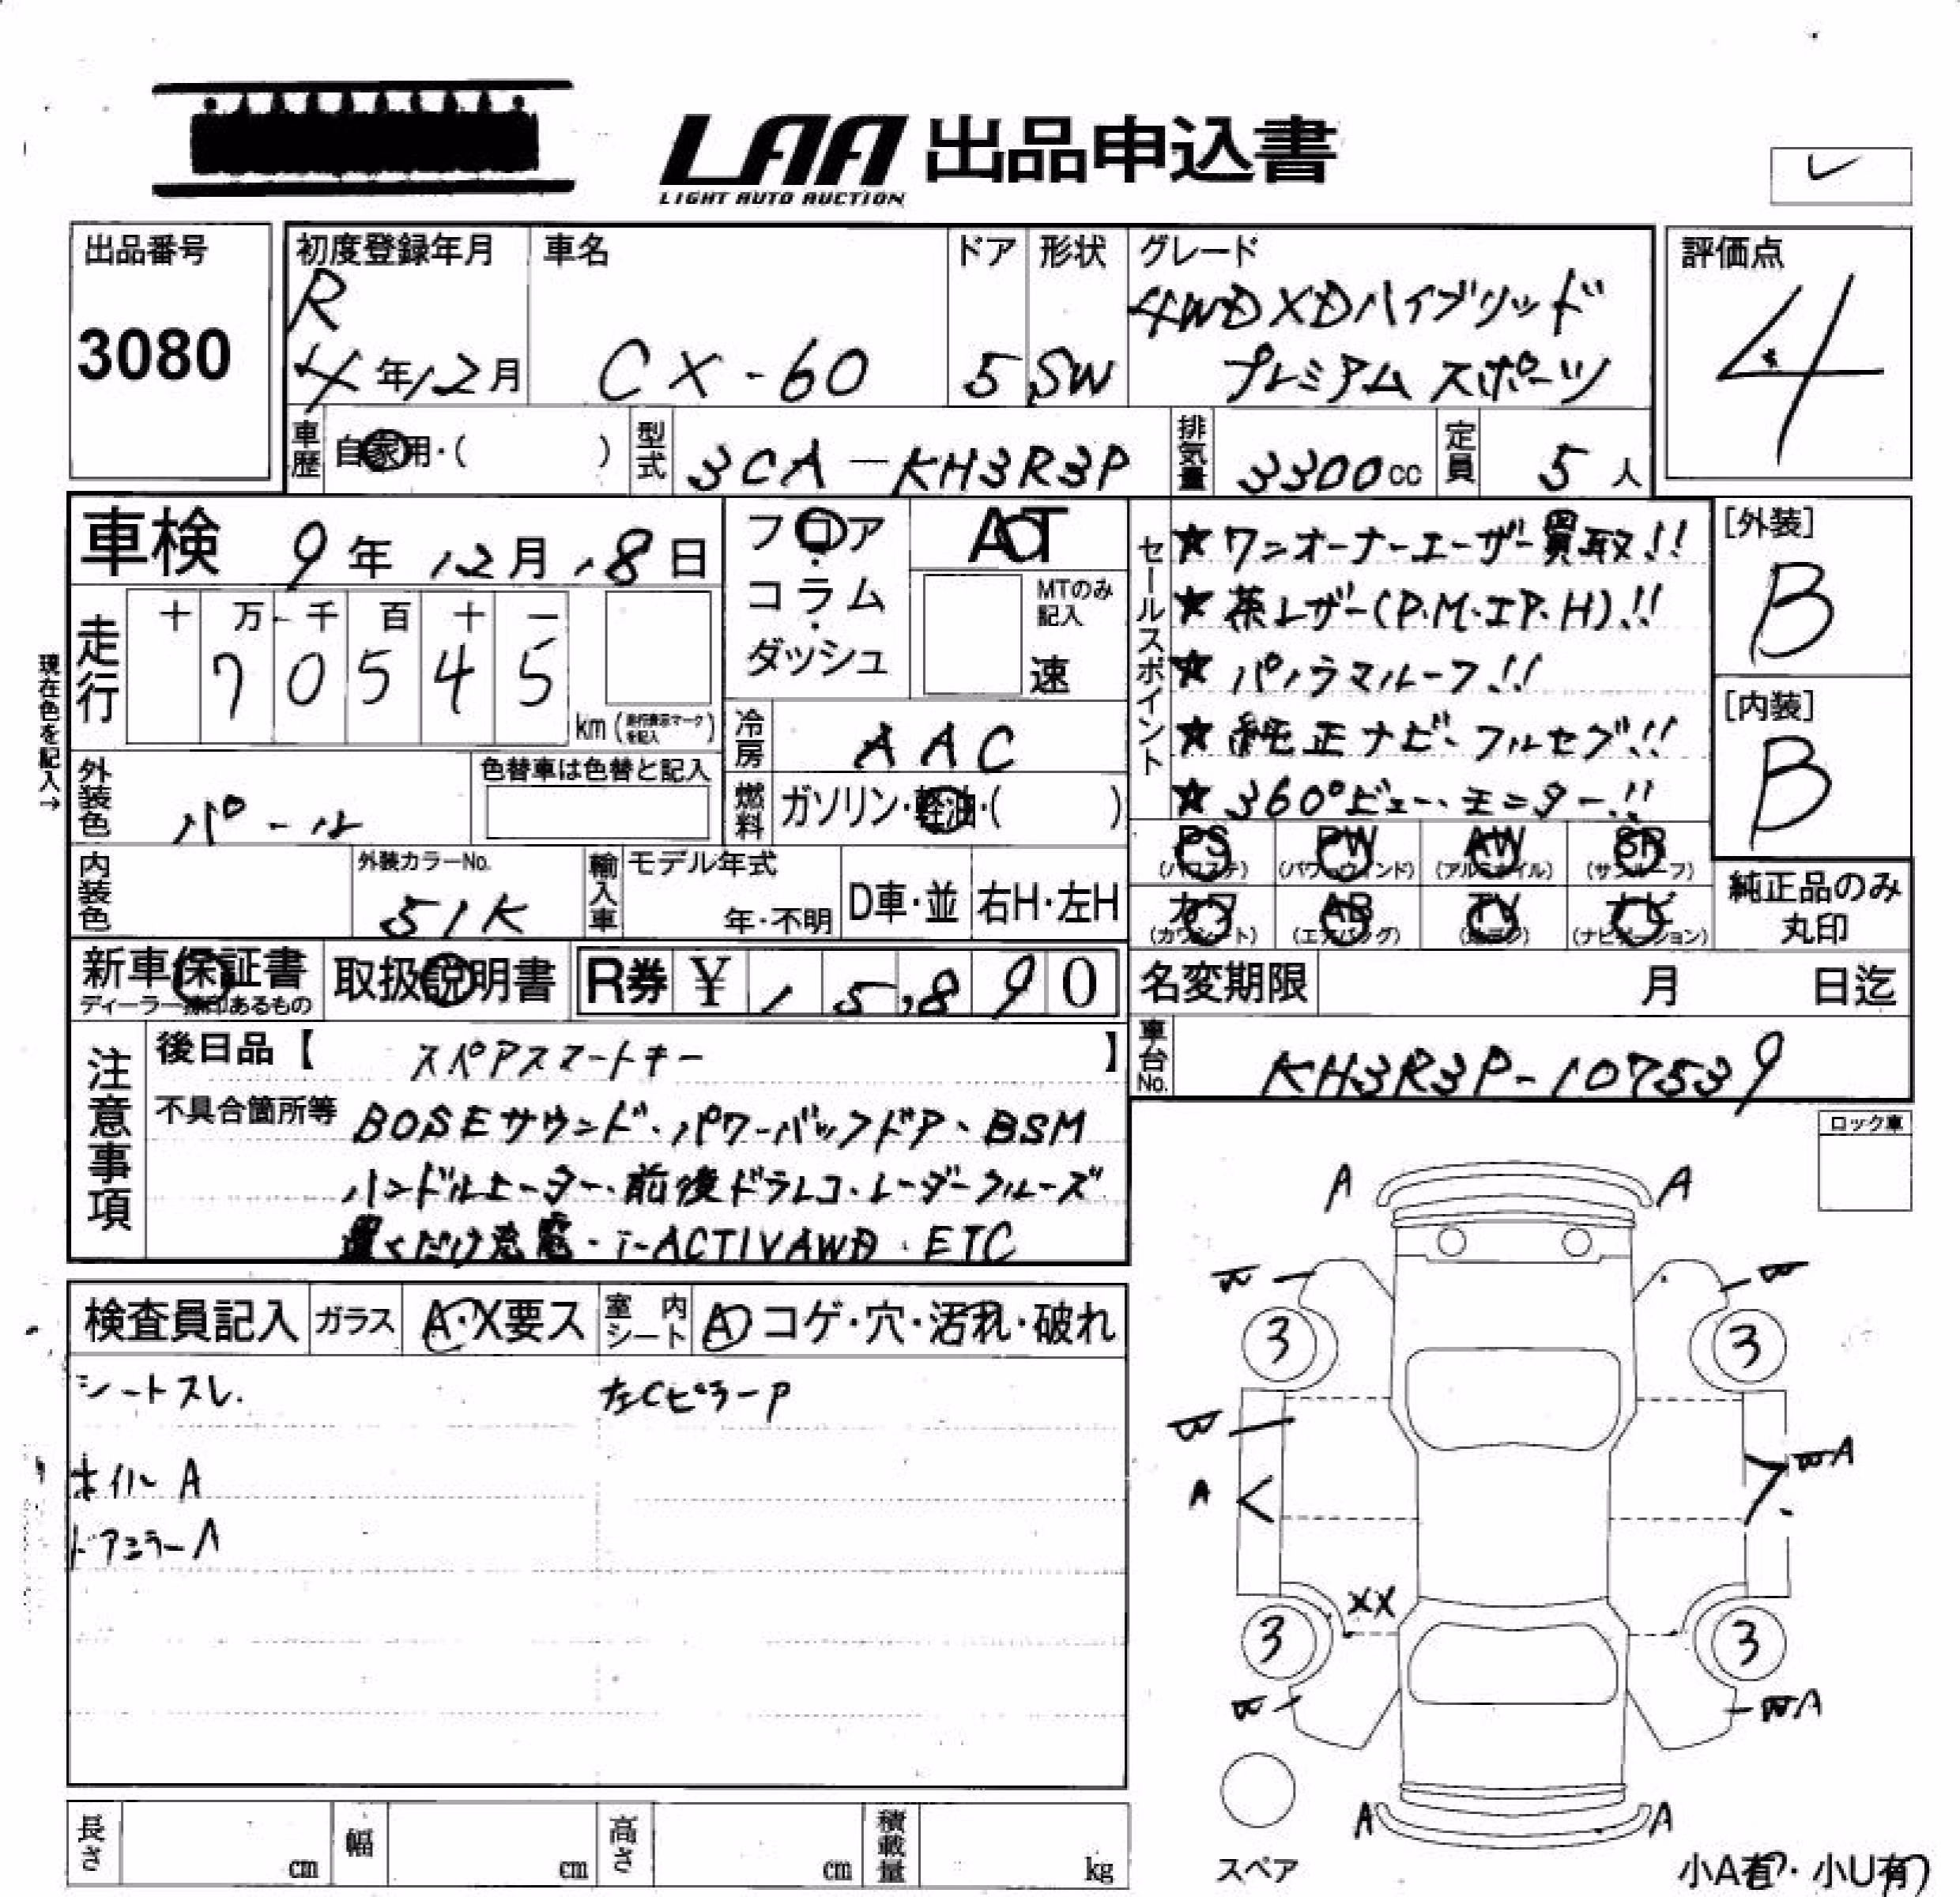 LAA 出品申込書
LIGHT AUTO AUCTION
出品番号
3080
初度登録年月
R
4年12月
車名
CX-60
ドア
5
形状
SW
グレード
4WD XDハイブリッド
プレミアム スポーツ
評価点
4
車歴
自家用・( )
型式
3CA-KH3R3P
排気量
3300cc
定員
5人
車検 9年12月18日
現在色を記入→
走行
十 万 千 百 十 一
7 0 5 4 5
km (走行表示マークを記入)
フロア
・
コラム
・
ダッシュ
AT
MTのみ
記入
速
冷房
AAC
燃料
ガソリン・軽油・( )
外装色
パール
色替車は色替と記入
内装色
外装カラーNo.
51K
輸入車
モデル年式
年・不明
D車・並
右H・左H
セールスポイント
★ワンオーナーユーザー買取!!
★茶レザー(P.M.エP.H)!!
★パノラマルーフ!!
★純正ナビ・フルセグ!!
★360°ビュー・モニター!!
[外装]
B
[内装]
B
PS
(パワステ)
PW
(パワーウィンド)
AW
(アルミホイル)
SR
(サンルーフ)
カワ
(カワシート)
AB
(エアバッグ)
TV
ナビ
(ナビゲーション)
純正品のみ
丸印
新車保証書
ディーラー捺印あるもの
取扱説明書
R券 ¥ 15,890
名変期限 月 日迄
車台No.
KH3R3P-107539
注意事項
後日品【 スペアスマートキー 】
不具合箇所等 BOSEサウンド・パワーバックドア・BSM
ハンドルヒーター・前後ドラレコ・レーダークルーズ
置くだけ充電・i-ACTIVAWD・ETC
ロック車
検査員記入
ガラス
A・X要ス
室内シート
A コゲ・穴・汚れ・破れ
シートスレ.
左CピラーP
ホイルA
ドアミラーA
A A
3 3
A
A
XX
3 3
A
A A
スペア
小A有・小U有
長さ cm
幅 cm
高さ cm
積載量 kg